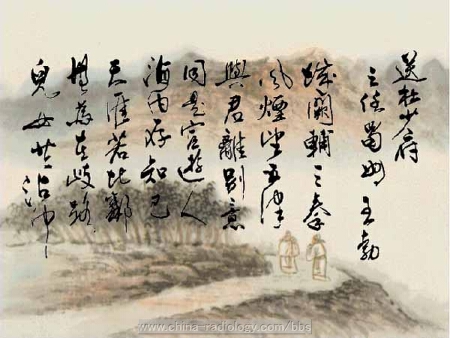 送杜少府
之任蜀州 王勃
城阙辅三秦
风烟望五津
與君離别意
同是宦遊人
海内存知己
天涯若比鄰
無為在歧路
兒女共沾巾
www.china-radiology.com/bbs